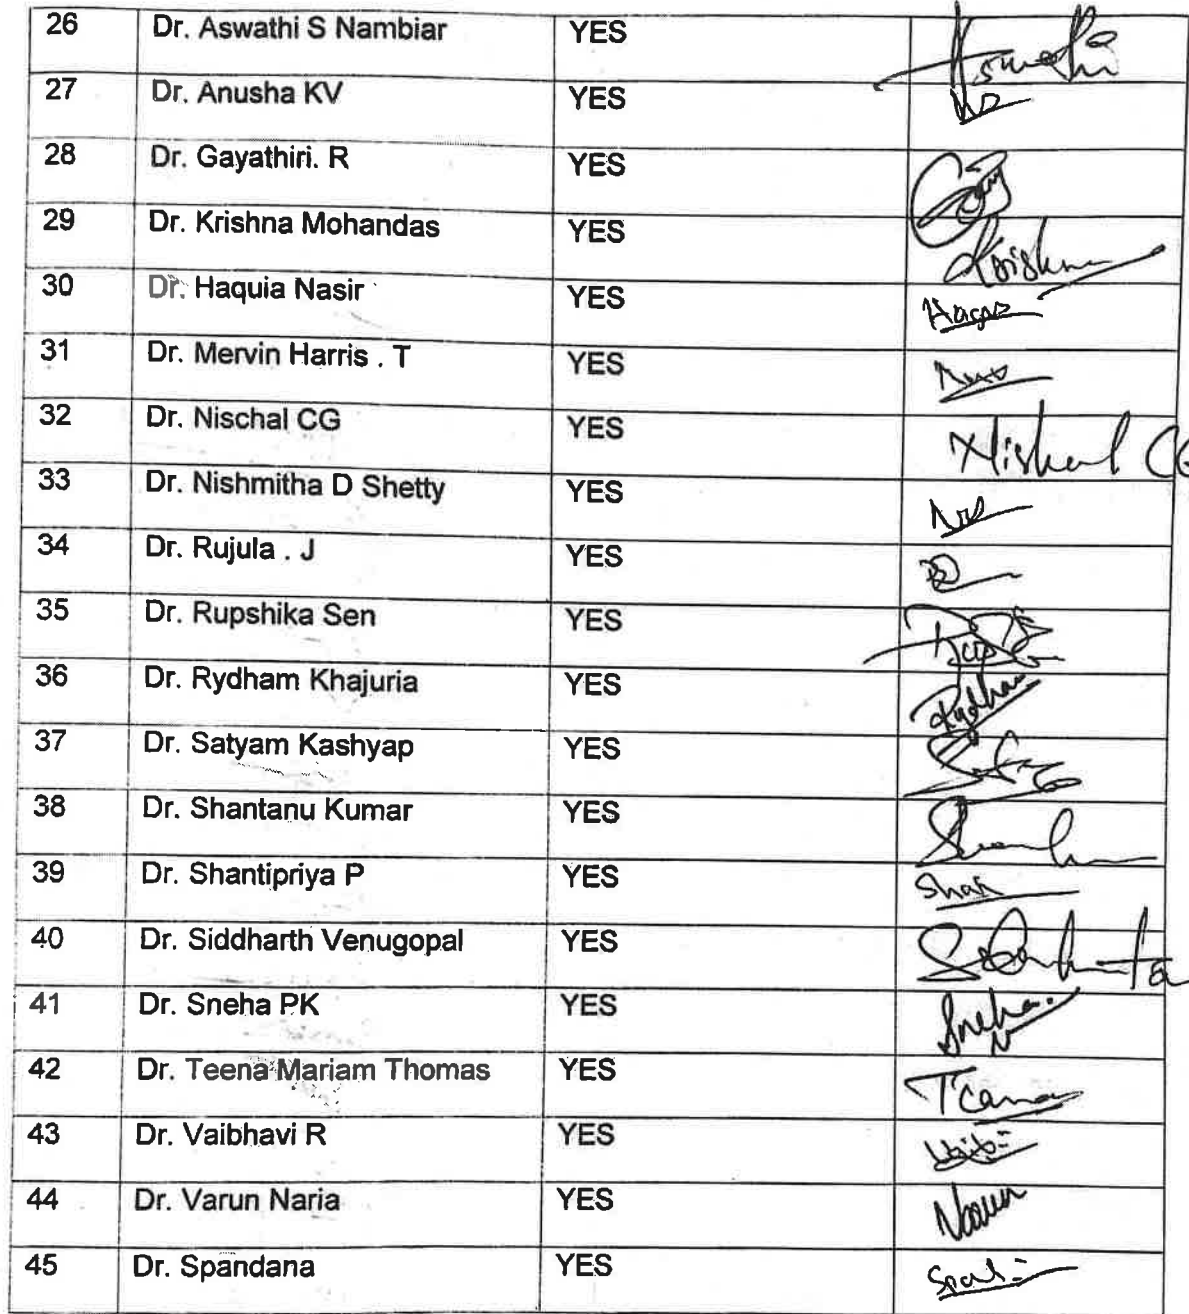 26 Dr. Aswathi S Nambiar YES Aswathi
27 Dr. Anusha KV YES
28 Dr. Gayathiri. R YES
29 Dr. Krishna Mohandas YES Krishna
30 Dr. Haquia Nasir YES
31 Dr. Mervin Harris . T YES
32 Dr. Nischal CG YES
33 Dr. Nishmitha D Shetty YES
34 Dr. Rujula . J YES
35 Dr. Rupshika Sen YES
36 Dr. Rydham Khajuria YES Rydham
37 Dr. Satyam Kashyap YES
38 Dr. Shantanu Kumar YES
39 Dr. Shantipriya P YES
40 Dr. Siddharth Venugopal YES
41 Dr. Sneha PK YES Sneha.
42 Dr. Teena Mariam Thomas YES
43 Dr. Vaibhavi R YES
44 Dr. Varun Naria YES
45 Dr. Spandana YES